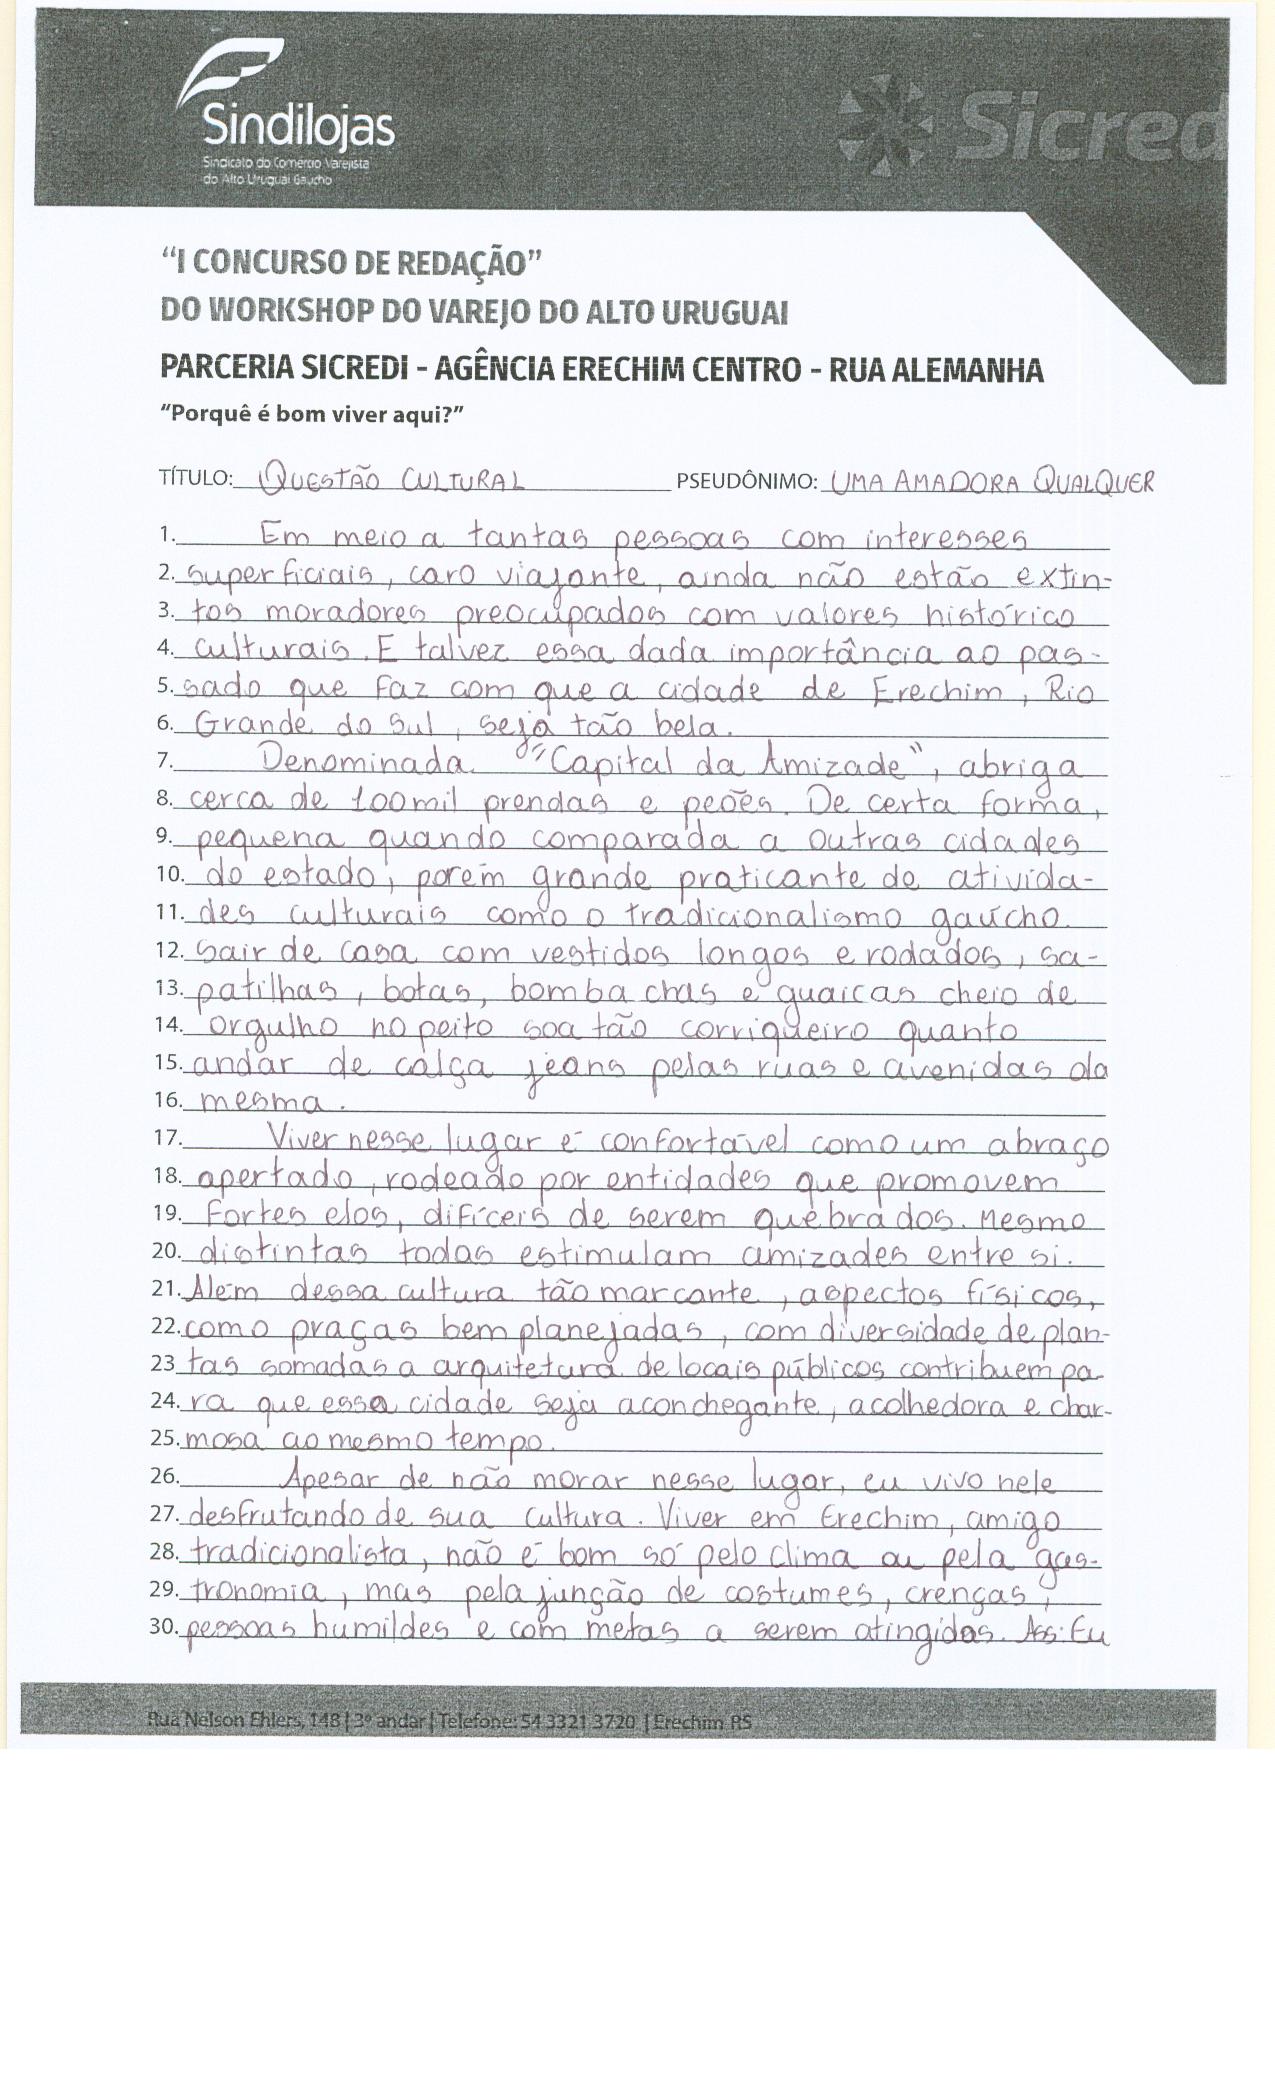 Sindilojas
Sindicato do Comércio Varejista
do Alto Uruguai Gaúcho
Sicred
“I CONCURSO DE REDAÇÃO”
DO WORKSHOP DO VAREJO DO ALTO URUGUAI
PARCERIA SICREDI - AGÊNCIA ERECHIM CENTRO - RUA ALEMANHA
“Porquê é bom viver aqui?”
TÍTULO: QUESTÃO CULTURAL PSEUDÔNIMO: UMA AMADORA QUALQUER
1. Em meio a tantas pessoas com interesses
2. superficiais, caro viajante, ainda não estão extin-
3. tos moradores preocupados com valores histórico
4. culturais. E talvez essa dada importância ao pas-
5. sado que faz com que a cidade de Erechim, Rio
6. Grande do Sul, seja tão bela.
7. Denominada “Capital da Amizade”, abriga
8. cerca de 100 mil prendas e peões. De certa forma,
9. pequena quando comparada a outras cidades
10. do estado, porém grande praticante de ativida-
11. des culturais como o tradicionalismo gaúcho.
12. Sair de casa com vestidos longos e rodados, sa-
13. patilhas, botas, bombachas e guaicas cheio de
14. orgulho no peito soa tão corriqueiro quanto
15. andar de calça jeans pelas ruas e avenidas da
16. mesma.
17. Viver nesse lugar é confortável como um abraço
18. apertado, rodeado por entidades que promovem
19. fortes elos, difíceis de serem quebrados. Mesmo
20. distintas todas estimulam amizades entre si.
21. Além dessa cultura tão marcante, aspectos físicos,
22. como praças bem planejadas, com diversidade de plan-
23 tas somadas a arquitetura de locais públicos contribuem pa-
24. ra que essa cidade seja aconchegante, acolhedora e char-
25. mosa ao mesmo tempo.
26. Apesar de não morar nesse lugar, eu vivo nele
27. desfrutando de sua cultura. Viver em Erechim, amigo
28. tradicionalista, não é bom só pelo clima ou pela gas-
29. tronomia, mas pela junção de costumes, crenças,
30. pessoas humildes e com metas a serem atingidas. Ass: Eu
Rua Nelson Ehlers, 148 | 3º andar | Telefone: 54 3321 3720 | Erechim RS